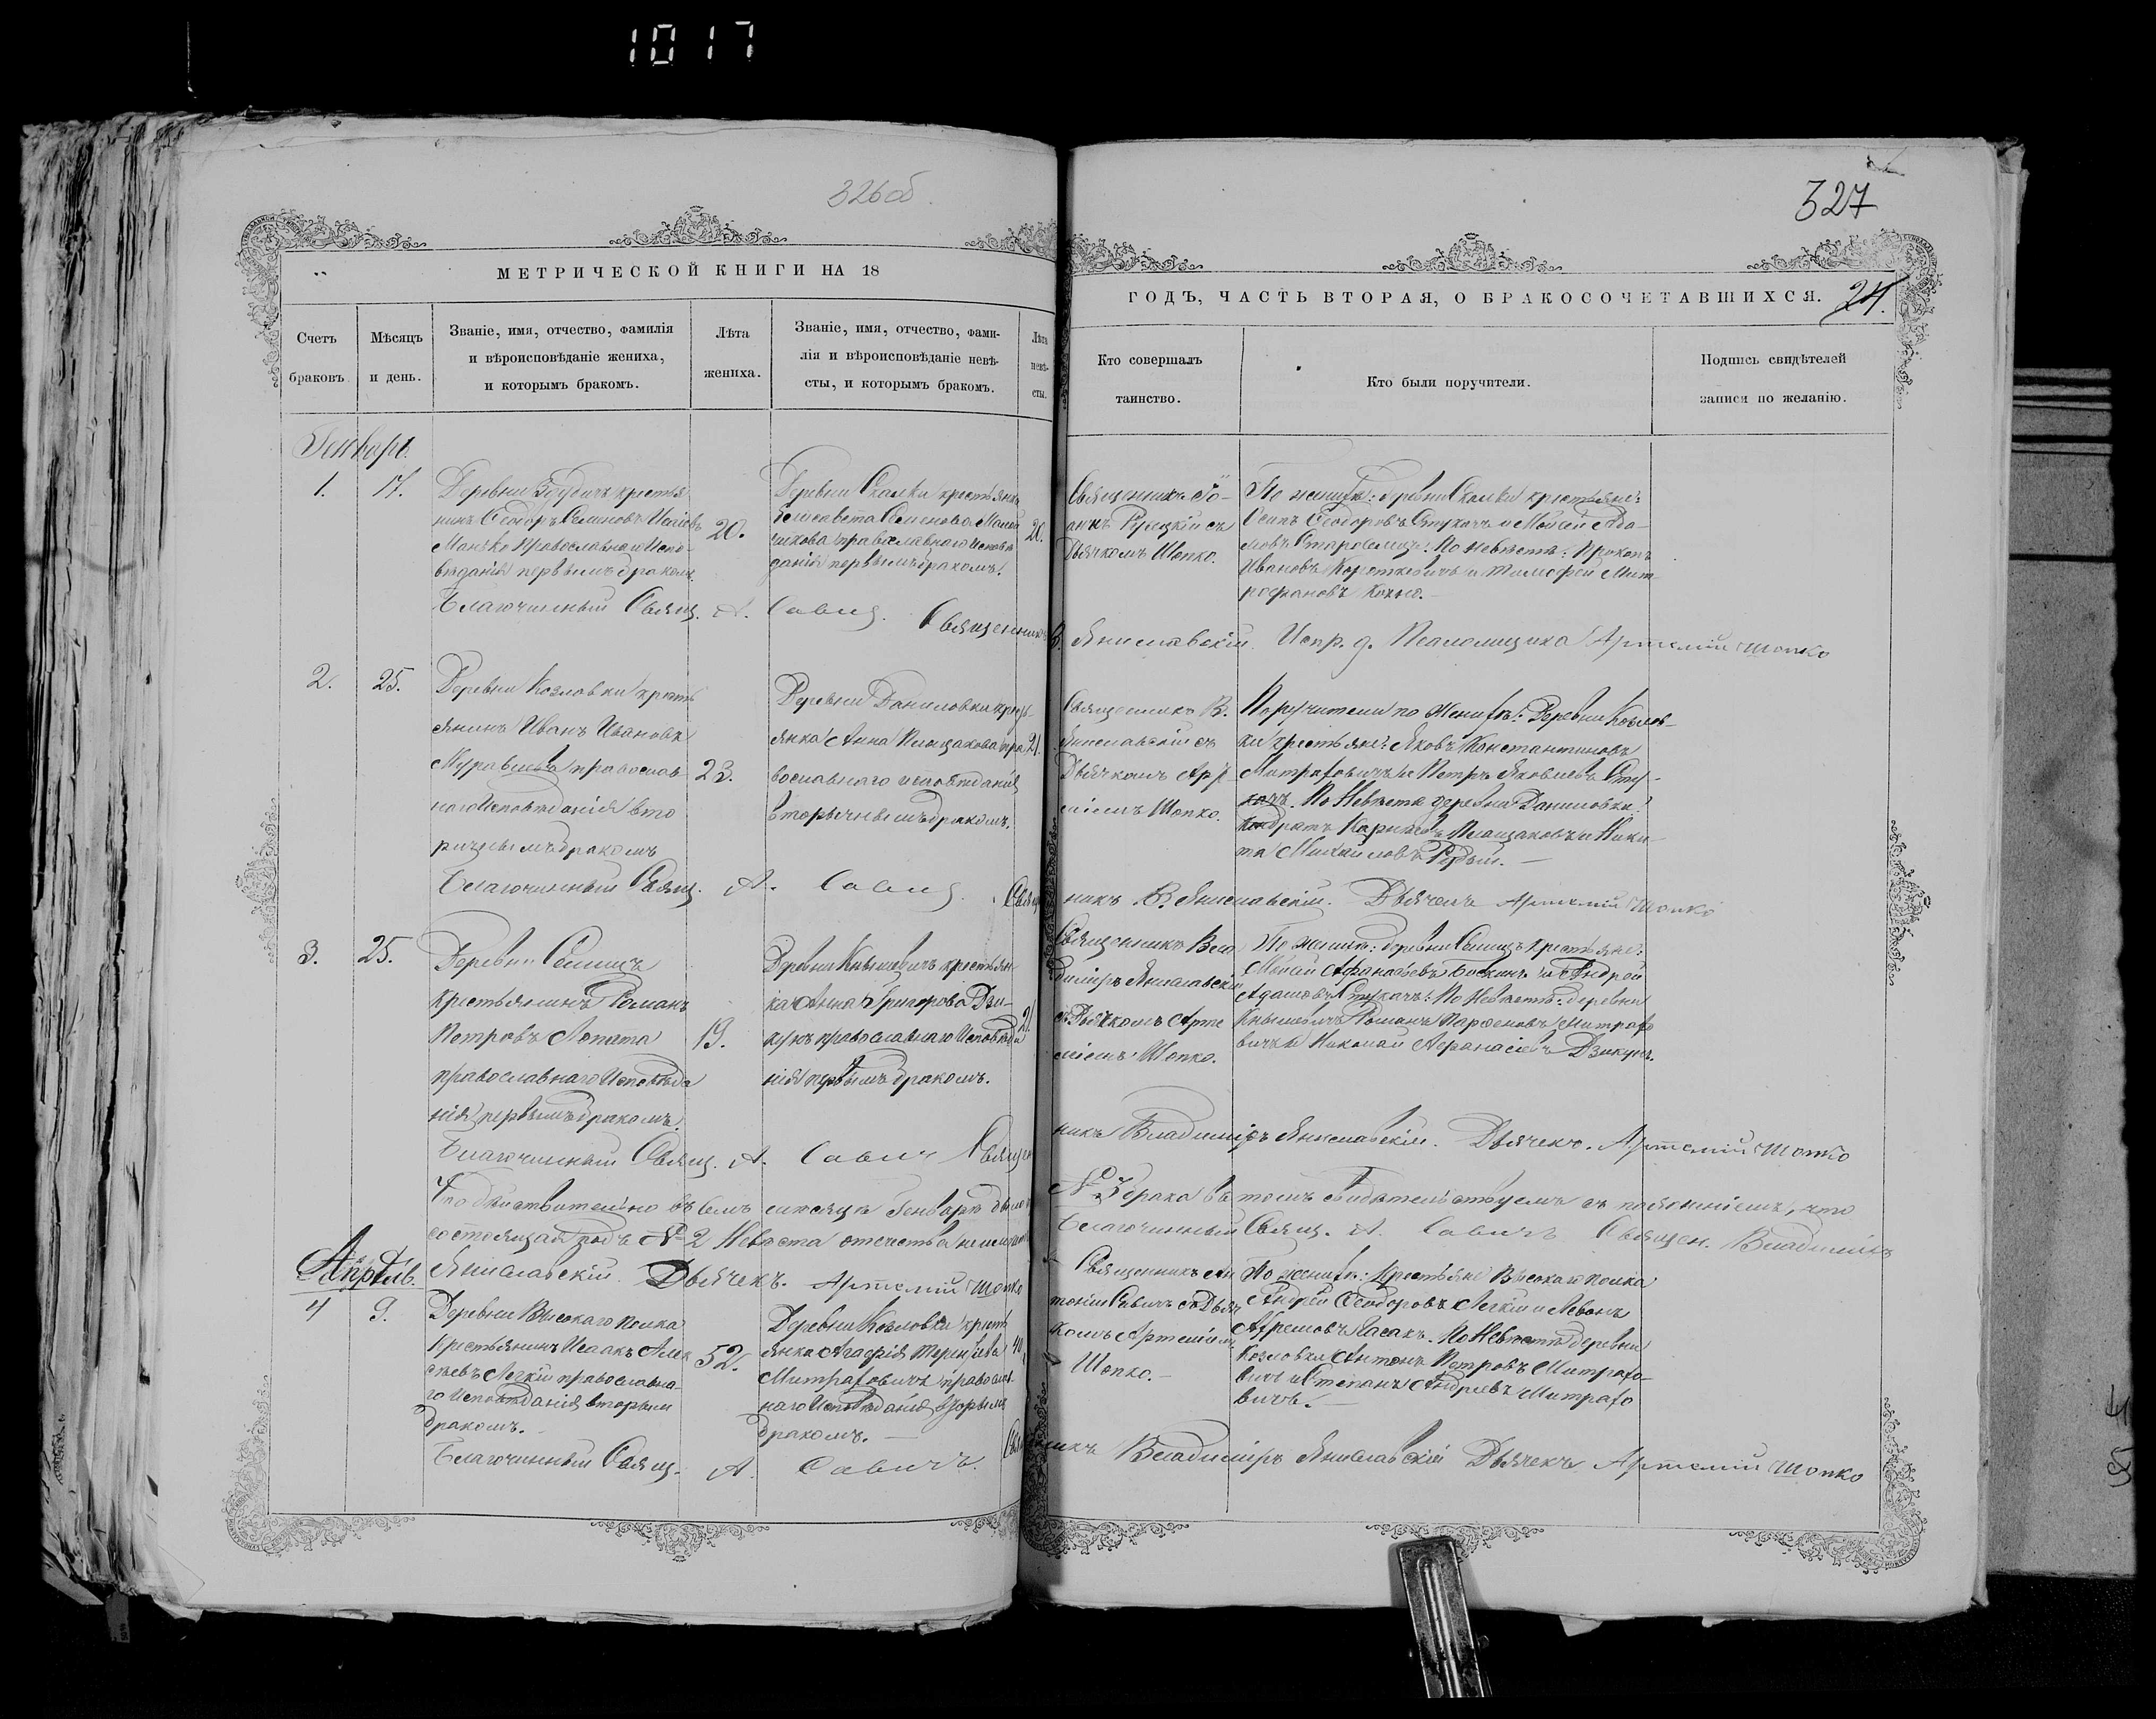 1017
326об.
327
МЕТРИЧЕСКОЙ КНИГИ НА 18
ГОДЪ, ЧАСТЬ ВТОРАЯ, О БРАКОСОЧЕТАВШИХСЯ.
24.
Счетъ браковъ.
Мѣсяцъ и день.
Званіе, имя, отчество, фамилія
и вѣроисповѣданіе жениха,
и которымъ бракомъ.
Лѣта
жениха.
Званіе, имя, отчество, фами-
лія и вѣроисповѣданіе невѣ-
сты, и которымъ бракомъ.
Лѣта
невѣ-
сты.
Кто совершалъ
таинство.
Кто были поручители.
Подпись свидѣтелей
записи по желанію.
Генварь
1.
17.
Деревни крестья
нинъ Ѳеодоръ
Манько Православнаго Испо-
вѣданія первымъ бракомъ.
20.
Деревни Скалки крестьянка
Елисавета Семенова
православнаго исповѣ
данія первымъ бракомъ.
20.
Священникъ Іо-
аннъ съ
Дьячкомъ Шопко.
По женихѣ: деревни Скалки крестьяне:
Осипъ Ѳеодоровъ Стукачъ и Мойсей Ада-
мовъ По невѣстѣ: Прокопъ
Ивановъ Короткевичъ и Тимофей Мит-
рофановъ Кохно.
Благочинный Свящ. А. Савич. Священникъ В. Яниславскій. Испр. д. Псаломщика Артемій Шопко
2.
25.
Деревни Козловки кресть
янинъ Иванъ Ивановъ
православ
наго Исповѣданія вто
ричнымъ бракомъ
23.
Деревни Даниловки кресть
янка Анна Плащакова пра
вославнаго исповѣданія
вторичнымъ бракомъ.
21.
Священникъ В.
Яниславскій съ
Дьячкомъ Арте
міемъ Шопко.
Поручители по Женихѣ: Деревни Козлов-
ки крестьяне: Яковъ Константиновъ
Митраховичъ и Петръ Яковлевъ Сту-
качъ. По Невѣстѣ деревни Даниловки:
Кондратъ Карповъ Плащаковъ и Ники-
та Михайловъ
Благочинный Свящ. А. Савич. Священ
никъ В. Яниславскій. Дьячекъ Артемій Шопко
3.
25.
Деревни
Крестьянинъ Романъ
Петровъ Лопата
православнаго Исповѣда
нія первымъ бракомъ.
19.
Деревни Кнышевичъ крестьян-
ка Анна Григорова Дзи-
кунъ православнаго Исповѣда
нія первымъ бракомъ.
21.
Священникъ Вла
диміръ Яниславскій
съ Дьячкомъ Арте
міемъ Шопко.
По женихѣ: деревни крестьяне:
Афанасьевъ и Андрей
Адамовъ Стукачъ: По Невѣстѣ: деревни
Кнышевичъ Романъ Парфеновъ Митрахо
вичъ и Николай Афанасіевъ Дзикунъ.
Благочинный Свящ. А. Савич Священ
никъ Владиміръ Яниславскій. Дьячекъ. Артемій Шопко
Что дѣйствительно въ семъ мѣсяцѣ Генварѣ было
№ 3 брака въ томъ свидѣтельствуемъ съ поясненіемъ, что
состоящая подъ № 2 Невѣста отчества не имѣетъ
Благочинный Свящ. А. Савичъ Священ. Владиміръ
Яниславскій. Дьячекъ. Артемій Шопко
Апрѣль.
4
9.
Деревни Высокаго полка
Крестьянинъ Исаакъ Алек
сѣевъ Легкій православна-
го Исповѣданія вторымъ
бракомъ.
52.
Деревни Козловки кресть
янка Агафія
Митраховичъ православ
наго Исповѣданія вторымъ
бракомъ.
40
Священникъ Ан
тоній Савичъ съ Дьяч
комъ Артеміемъ
Шопко.
По женихѣ: Крестьяне Высокаго полка
Андрей Ѳеодоровъ Легкій и Левонъ
По Невѣстѣ деревни
Козловки Антонъ Петровъ Митрахо-
вичъ и Степанъ Андреевъ Митрахо
вичъ.
Благочинный Свящ. А. Савичъ. Священ
никъ Владиміръ Яниславскій Дьячекъ Артемій Шопко